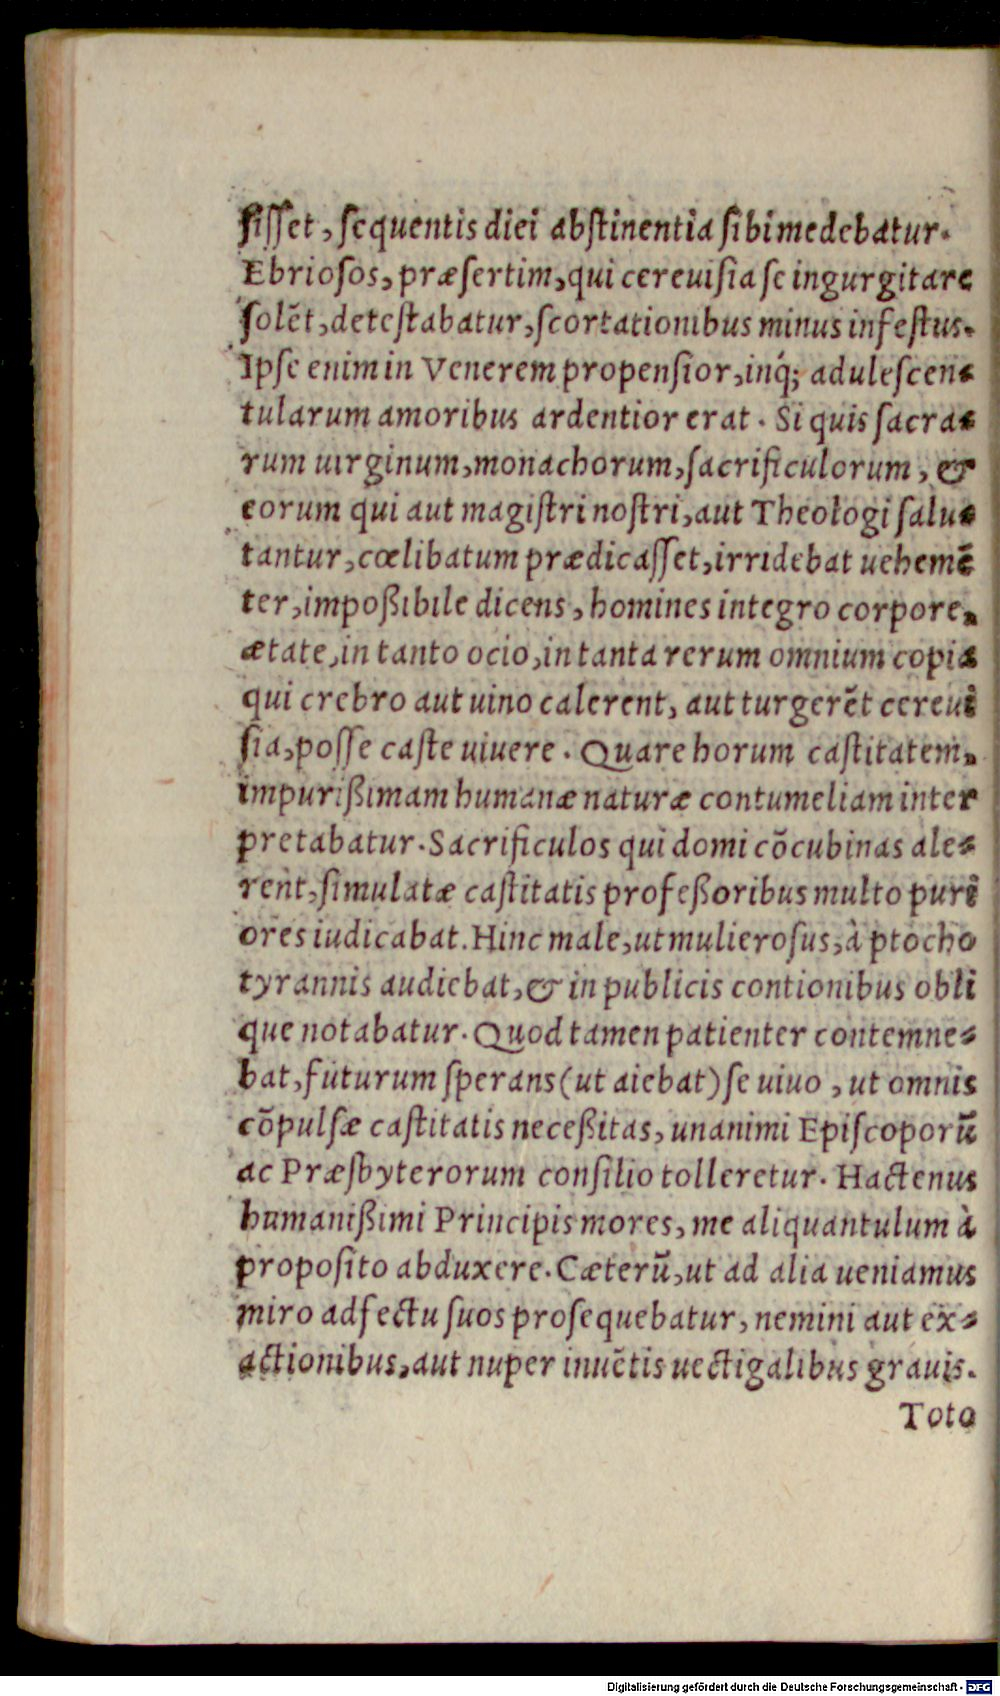 ſiſſet, ſequentis diei abſtinentia ſibi medebatur.
Ebrioſos, præſertim, qui cereuiſia ſe ingurgitare
ſolēt, deteſtabatur, ſcortationibus minus infeſtus.
Ipſe enim in Venerem propenſior, inq́; aduleſcen-
tularum amoribus ardentior erat. Si quis ſacra-
rum uirginum, monachorum, ſacrificulorum, &
eorum qui aut magiſtri noſtri, aut Theologi ſalu-
tantur, cœlibatum prædicaſſet, irridebat uehemē
ter, impoßibile dicens, homines integro corpore,
ætate, in tanto ocio, in tanta rerum omnium copia
qui crebro aut uino calerent, aut turgerēt cereui
ſia, poſſe caſte uiuere. Quare horum caſtitatem,
impurißimam humanæ naturæ contumeliam inter
pretabatur. Sacrificulos qui domi cōcubinas ale-
rent, ſimulatæ caſtitatis profeßoribus multo puri
ores iudicabat. Hinc male, ut mulieroſus, à ptocho
tyrannis audiebat, & in publicis contionibus obli
que notabatur. Quod tamen patienter contemne-
bat, futurum ſperans (ut aiebat) ſe uiuo, ut omnis
cōpulſæ caſtitatis neceßitas, unanimi Epiſcoporū
ac Præſbyterorum conſilio tolleretur. Hactenus
humanißimi Principis mores, me aliquantulum à
propoſito abduxere. Cæterū, ut ad alia ueniamus
miro adfectu ſuos proſequebatur, nemini aut ex-
actionibus, aut nuper inuētis uectigalibus grauis.
Toto
Digitalisierung gefördert durch die Deutsche Forschungsgemeinschaft - DFG